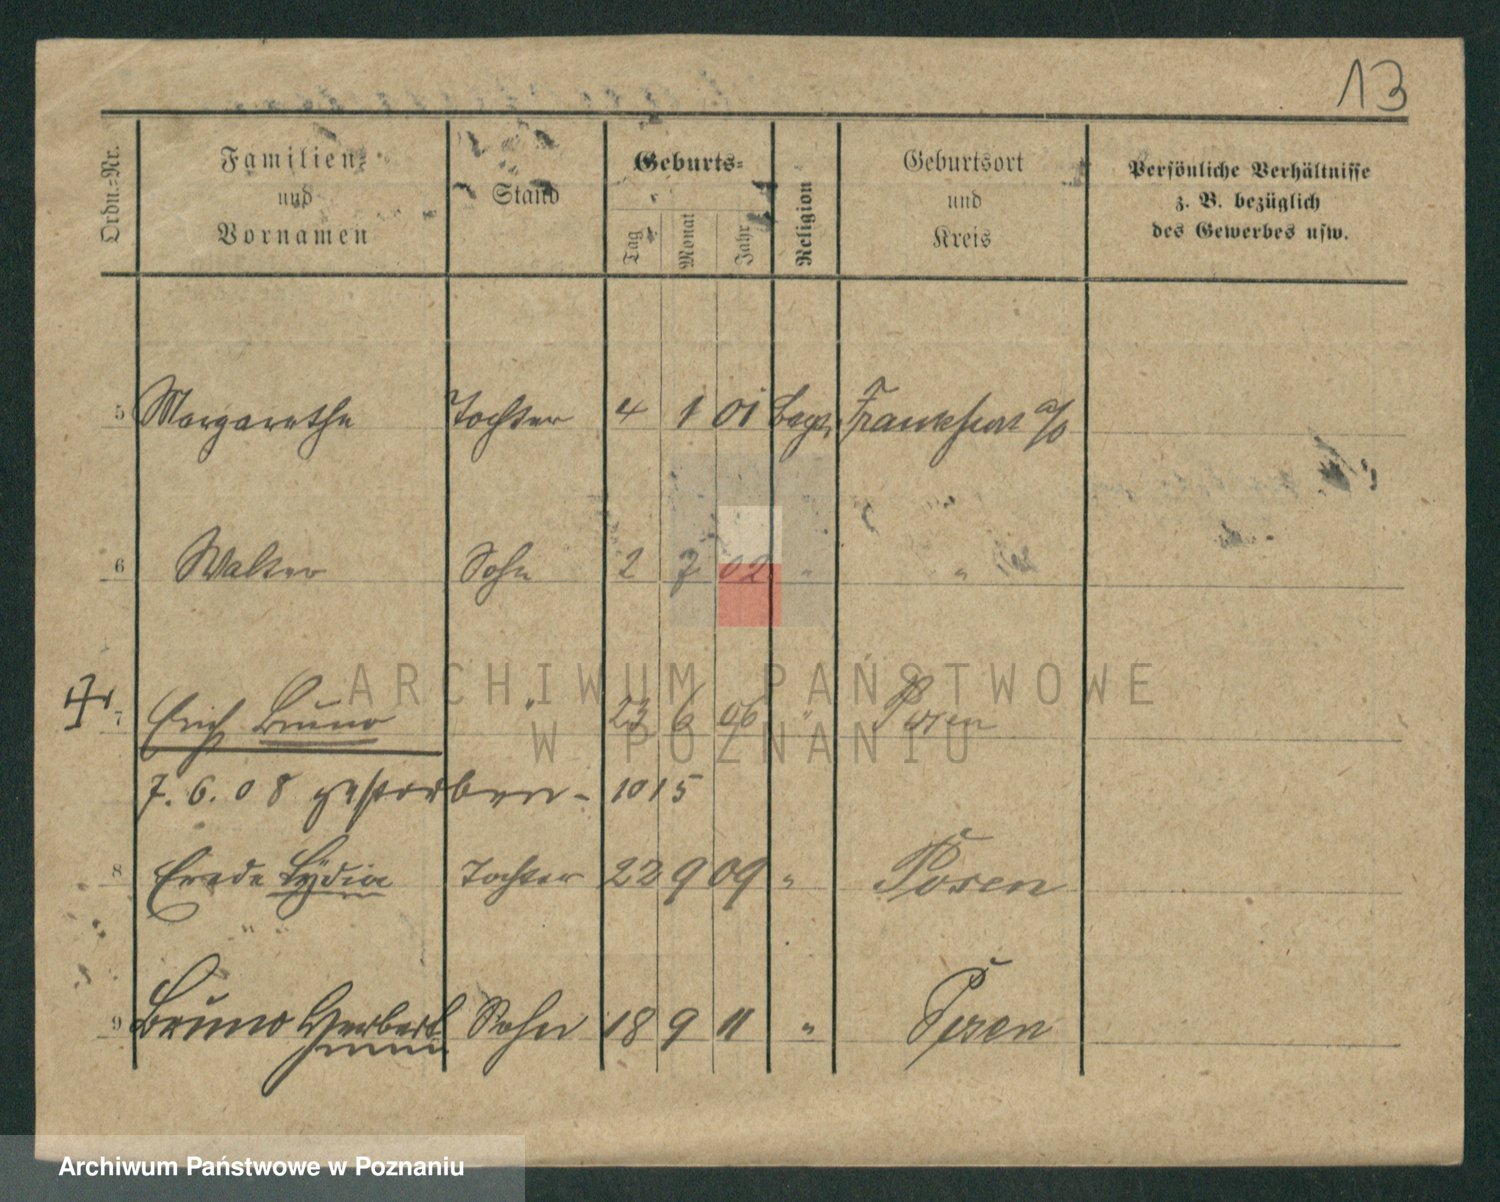 13
Ordn.-Nr.
Familien-
und
Vornamen
Stand
Geburts-
Tag
Monat
Jahr
Religion
Geburtsort
und
Kreis
Persönliche Verhältnisse
z. B. bezüglich
des Gewerbes usw.
5 Margarethe Tochter 4 1 01 Frankfurt a/O
6 Walter Sohn 2 7 02 " "
7 Erich Bruno " 23 6 06 " Posen
7. 6. 08 gestorben - 1015
8 Lydia Tochter 22 9 09 " Posen
9 Bruno Herbert Sohn 18 9 11 " Posen
ARCHIWUM PAŃSTWOWE
W POZNANIU
Archiwum Państwowe w Poznaniu